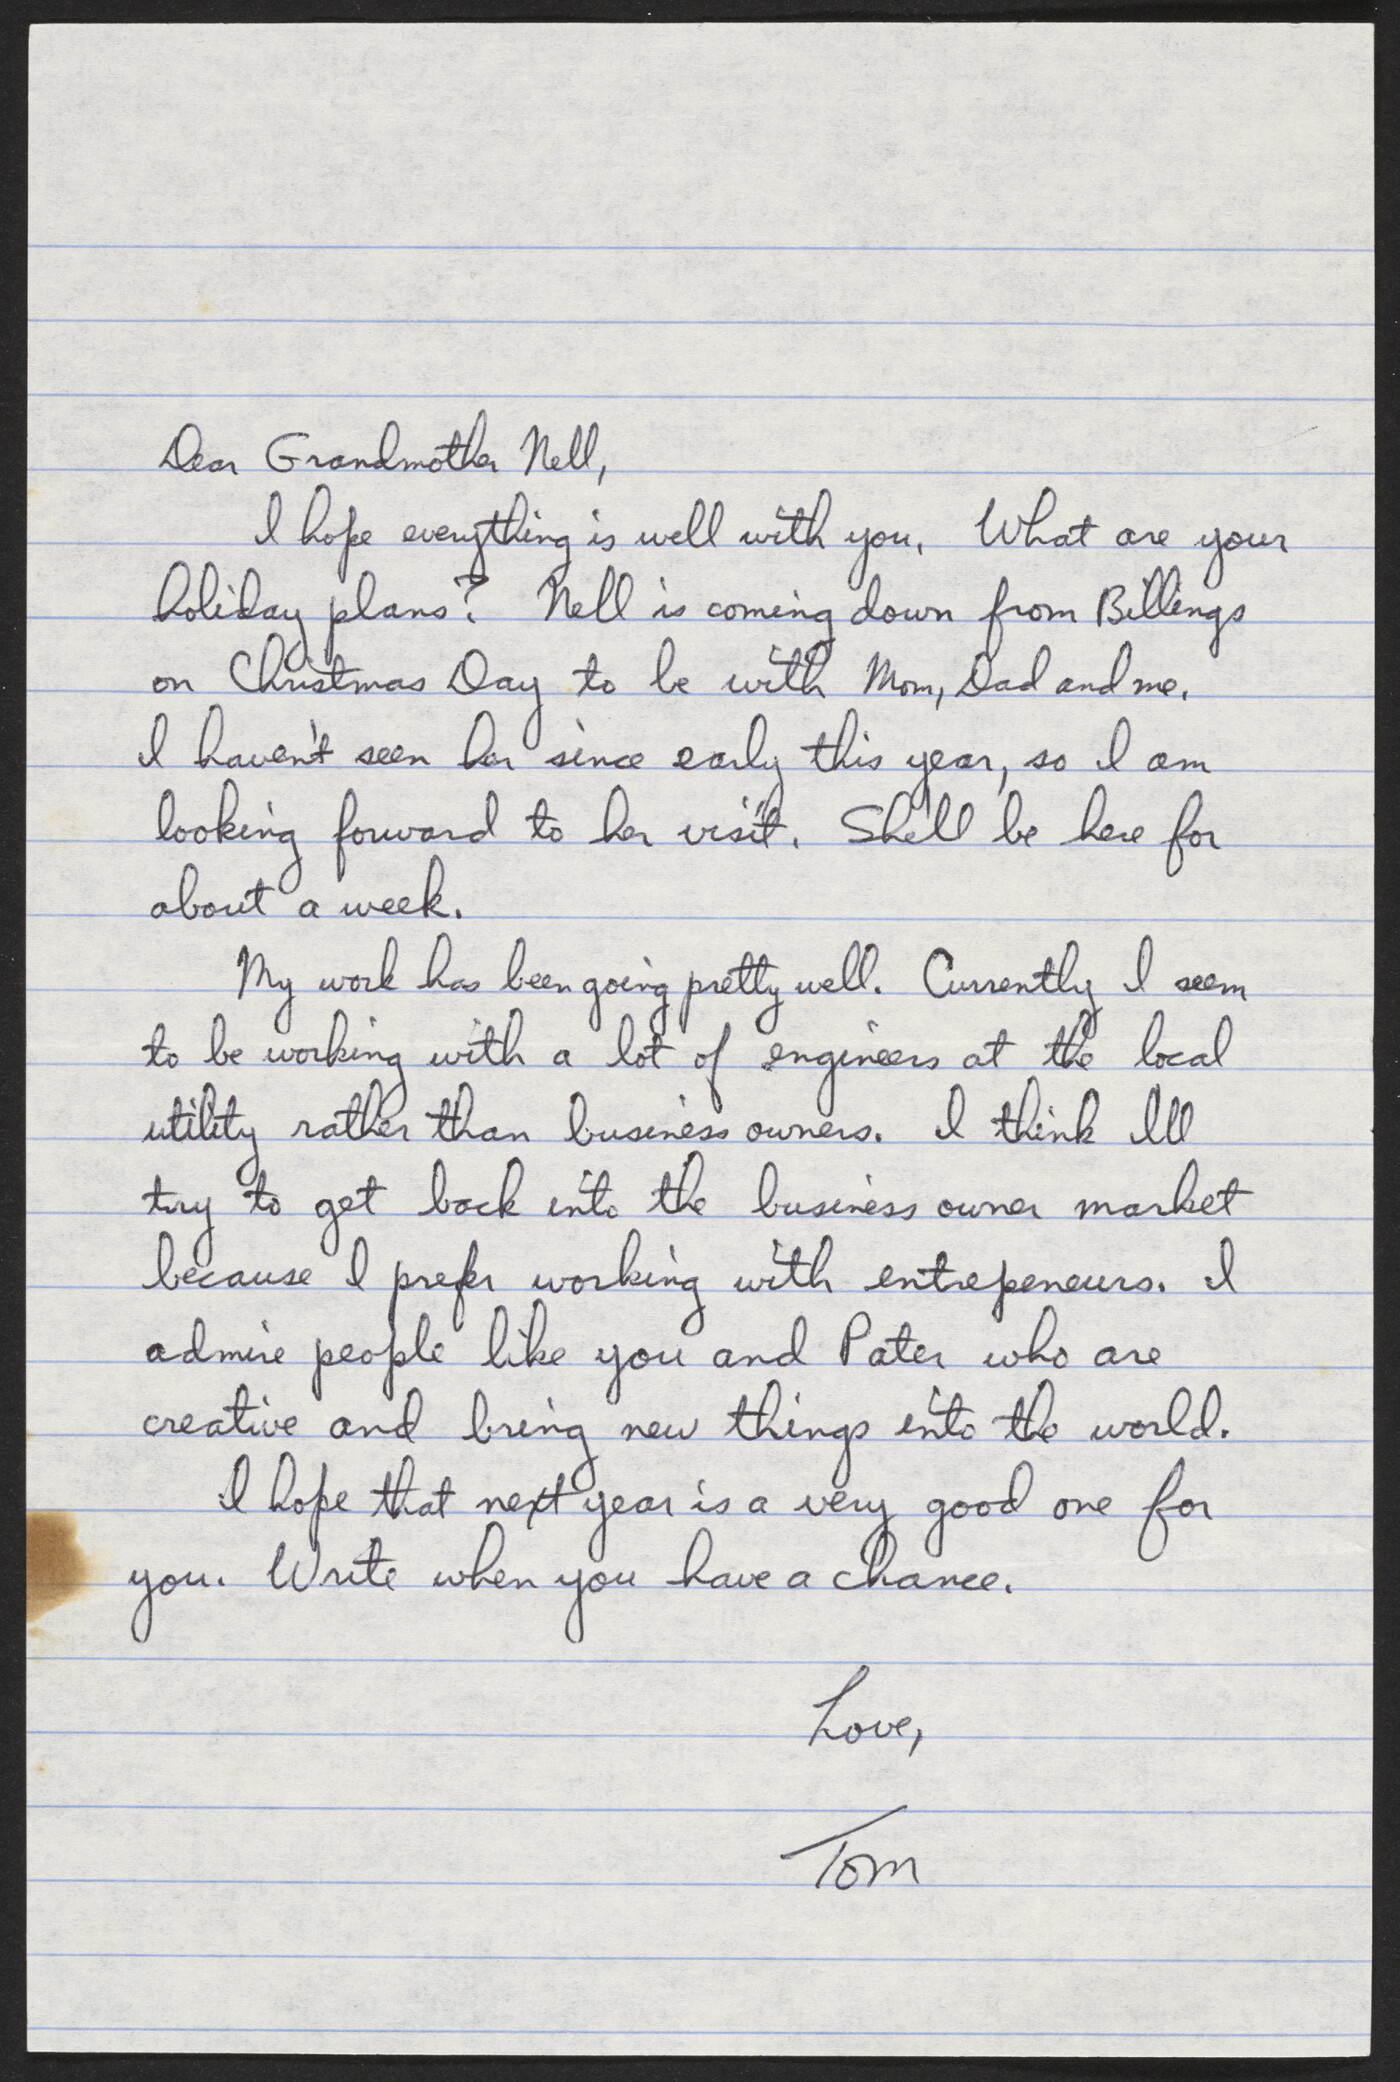 Dear Grandmother Nell,
I hope everything is well with you. What are your
holiday plans? Nell is coming down from Billings
on Christmas Day to be with Mom, Dad and me.
I haven't seen her since early this year, so I am
looking forward to her visit. She'll be here for
about a week.
My work has been going pretty well. Currently I seem
to be working with a lot of engineers at the local
utility rather than business owners. I think I'll
try to get back into the business owner market
because I prefer working with entrepeneurs. I
admire people like you and Pater who are
creative and bring new things into the world.
I hope that next year is a very good one for
you. Write when you have a chance.
Love,
Tom